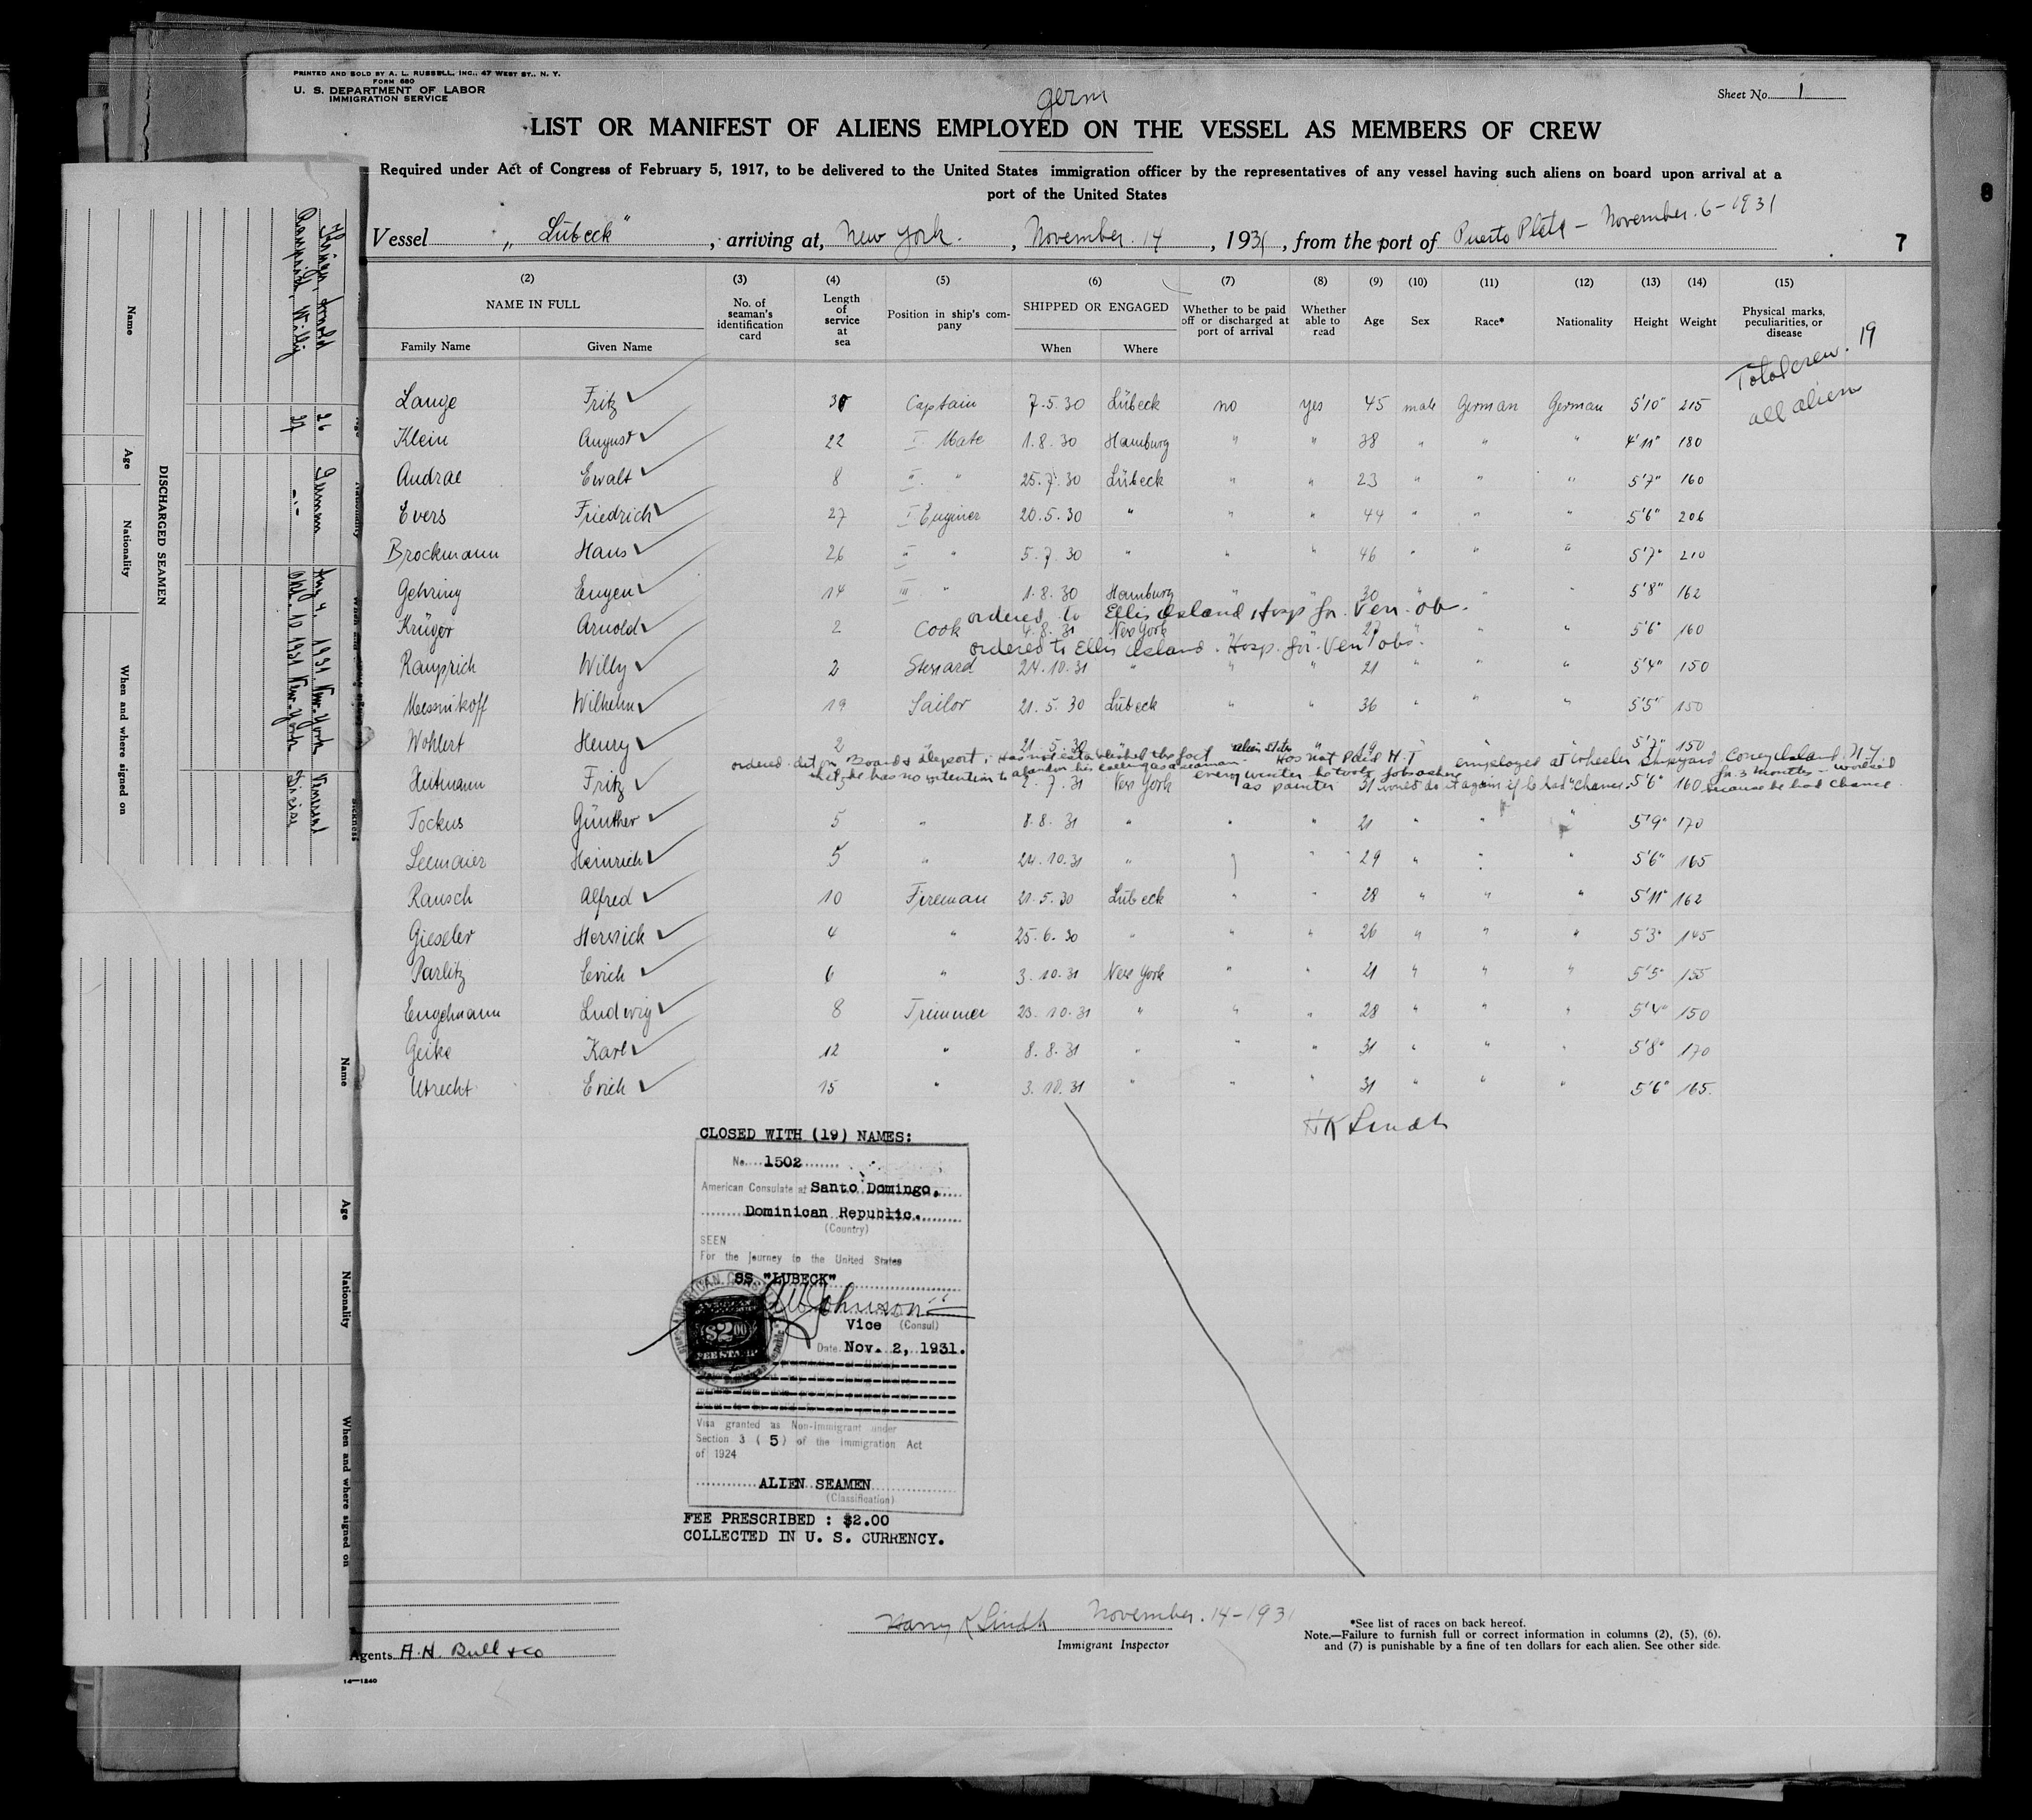 PRINTED AND SOLD BY A. L. RUSSELL, INC., 47 WEST ST., N. Y.
FORM 680
U. S. DEPARTMENT OF LABOR
IMMIGRATION SERVICE
germ
Sheet No. 1
LIST OR MANIFEST OF ALIENS EMPLOYED ON THE VESSEL AS MEMBERS OF CREW
Required under Act of Congress of February 5, 1917, to be delivered to the United States immigration officer by the representatives of any vessel having such aliens on board upon arrival at a
port of the United States
Vessel „Lübeck“, arriving at, New York., November 14, 1931, from the port of Puerto Plata – November 6–1931
7
8
(2) (3) (4) (5) (6) (7) (8) (9) (10) (11) (12) (13) (14) (15)
NAME IN FULL
Family Name Given Name
No. of seaman's identification card
Length of service at sea
Position in ship's company
SHIPPED OR ENGAGED
When Where
Whether to be paid off or discharged at port of arrival
Whether able to read
Age
Sex
Race*
Nationality
Height
Weight
Physical marks, peculiarities, or disease
Total crew. 19
all alien
Lange Fritz 30 Captain 7.5.30 Lübeck no yes 45 male German German 5'10" 215
Klein August 22 I Mate 1.8.30 Hamburg " " 38 " " " 4'11" 180
Andrae Ewalt 8 II. " 25.7.30 Lübeck " " 23 " " " 5'7" 160
Evers Friedrich 27 I Enginer 20.5.30 " " " 44 " " " 5'6" 206
Brockmann Hans 26 II " 5.7.30 " " " 46 " " " 5'7" 210
Gehring Eugen 14 III. " 1.8.30 Hamburg " " 30 " " " 5'8" 162
ordered to Ellis Island Hosp for. Ven. ob.
Krüger Arnold 2 Cook 4.8.31 New York 27 " " " 5'6" 160
ordered to Ellis Island. Hosp. for Ven obs.
Ramprich Willy 2 Steward 24.10.31 " " " 21 " " " 5'4" 150
Wilhelm 19 Sailor 21.5.30 Lübeck " " 36 " " " 5'5" 150
Wohlert Henry 2 " 21.5.30 " " 19 " " " 5'7" 150
ordered det on Board & deport. Has not established the fact alien states Has not Paid H.T employed at Wheeler Shipyard Coney Island. N.Y
that he has no intention to abandon his calling as a seaman. every winter he took jobs ashore for 3 months – worked
as painter would do it again if he had chance. because he had chance
Heitmann Fritz 5 " 2.7.31 New York 31 5'6" 160
Tockus Günther 5 " 8.8.31 " " " 21 " " " 5'9" 170
Leemaier Heinrich 5 " 24.10.31 " " " 29 " " " 5'6" 165
Rausch Alfred 10 Fireman 21.5.30 Lübeck " " 28 " " " 5'11" 162
Gieseler Herwich 4 " 25.6.30 " " " 26 " " " 5'3" 145
Parlitz Erich 6 " 3.10.31 New York " " 21 " " " 5'5" 155
Engelmann Ludwig 8 Trimmer 23.10.31 " " " 28 " " " 5'4" 150
Geike Karl 12 " 8.8.31 " " " 31 " " " 5'8" 170
Utrecht Erich 15 " 3.10.31 " " " 31 " " " 5'6" 165.
H K Lindh
CLOSED WITH (19) NAMES:
No. 1502
American Consulate at Santo Domingo,
Dominican Republic.
(Country)
SEEN
For the journey to the United States
SS "LUBECK"
Johnson
Vice (Consul)
$2.00
FEE STAMP
Date Nov. 2, 1931.
Visa granted as Non-Immigrant under
Section 3 (5) of the Immigration Act
of 1924
ALIEN SEAMEN
(Classification)
FEE PRESCRIBED : $2.00
COLLECTED IN U. S. CURRENCY.
Harry K Lindh November. 14–1931
Immigrant Inspector
*See list of races on back hereof.
Note.—Failure to furnish full or correct information in columns (2), (5), (6),
and (7) is punishable by a fine of ten dollars for each alien. See other side.
Agents A.H. Bull & Co
14—1240
DISCHARGED SEAMEN
Name Age Nationality When and where signed on Sickness
Krüger, Arnold 26 German Aug 4. 1931 New-York Venereal
Ramprich, Willy 27 -"- Okt. 10 1931 New-York Disease
Name Age Nationality When and where signed on